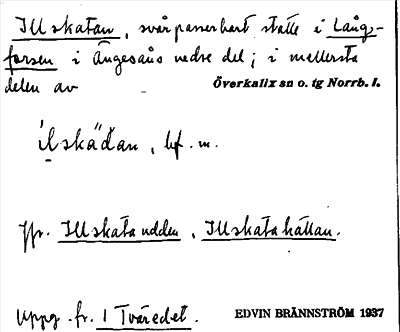 Illskatan, svårpasserbart ställe i Lång-
forsen i Ängesåns nedre del; i mellersta
delen av Överkalix sn o. tg Norrb. l.
i̍lskä̀dan, bf. m.
Jfr. Illskataudden, Illskatakällan.
Uppg. fr. 1 Tväredet. EDVIN BRÄNNSTRÖM 1937